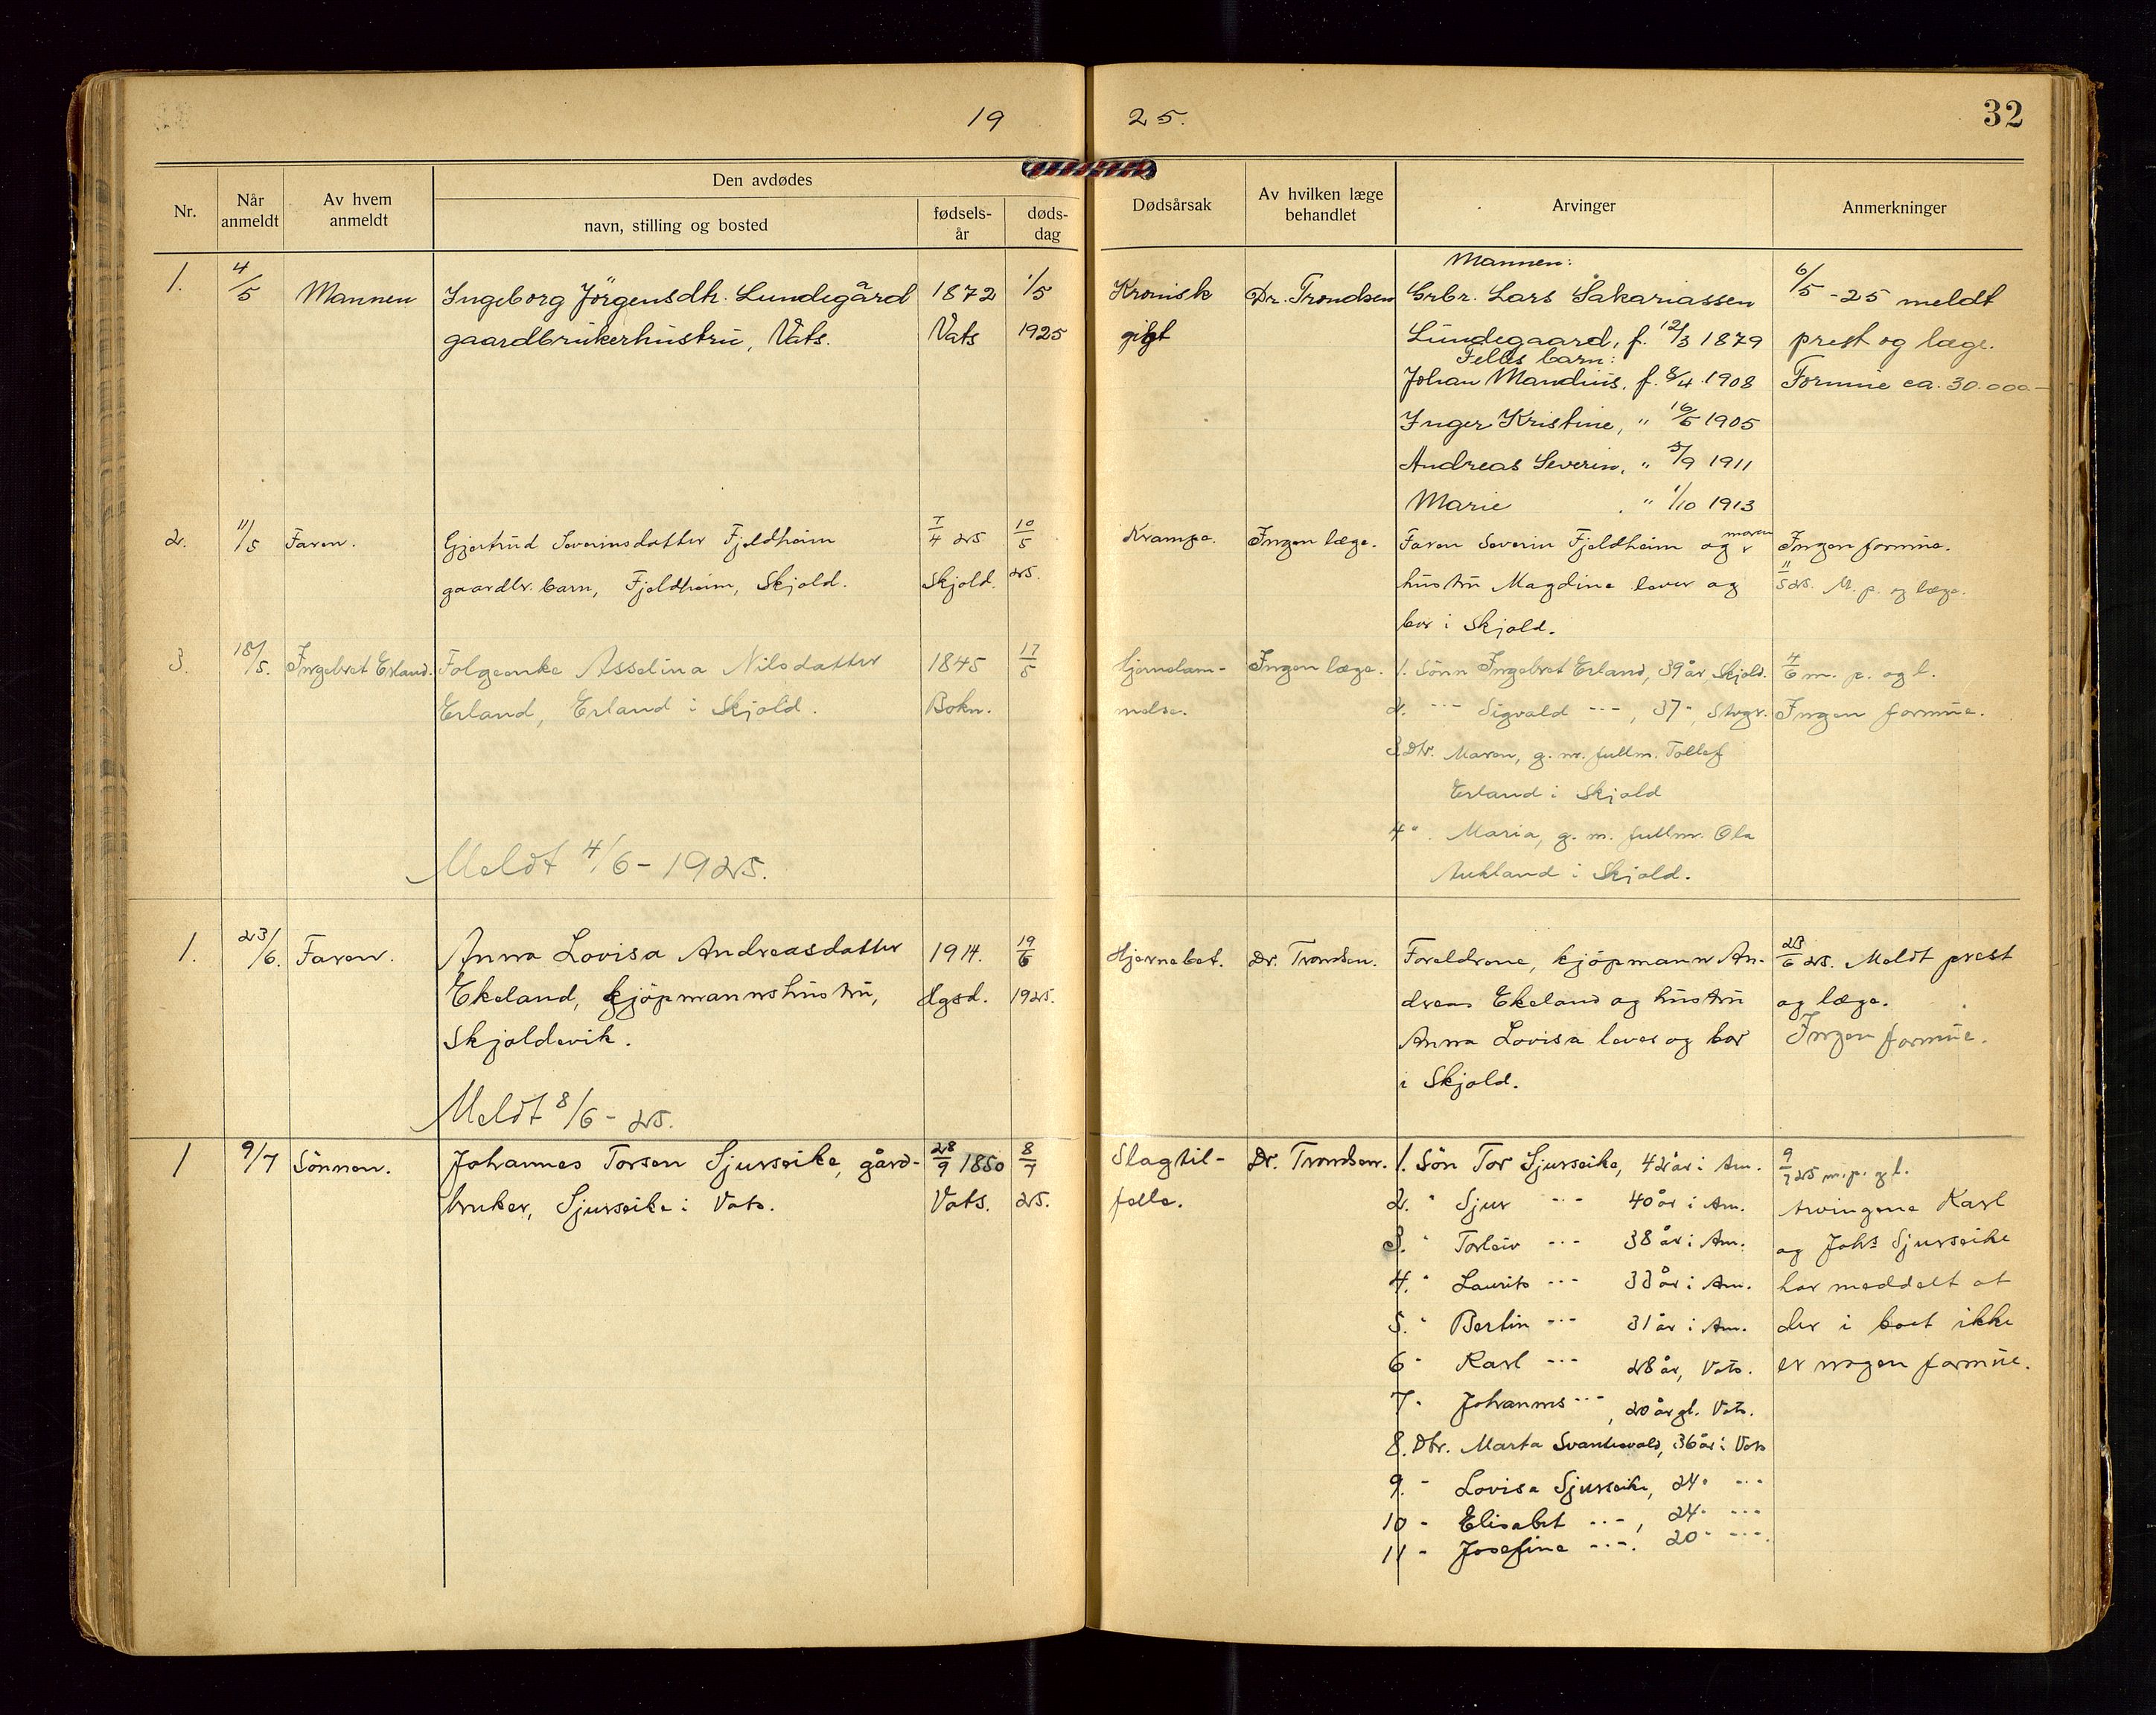 19 25.
32
Nr.
Når anmeldt
Av hvem anmeldt
Den avdødes
navn, stilling og bosted
fødsels-år
døds-dag
Dødsårsak
Av hvilken læge behandlet
Arvinger
Anmerkninger
1. 4/5 Mannen Ingeborg Jörgensdtr. Lundegård 1872 1/5
gaardbrukerhustru, Vats. Vats 1925
Kronisk Dr. Trondsen
gigt
Mannen:
Grbr. Lars Sakariassen
Lundegaard, f. 12/3 1879
Felles barn:
Johan Mandius, f. 8/4 1908
Inger Kristine, " 16/5 1905
Andreas Severin, " 5/9 1911
Marie " 1/10 1913
6/5 - 25 meldt
prest og læge.
Formue ca. 30.000-
2. 11/5 Faren. Gjertrud Severinsdatter Fjeldheim 7/4 25 10/5
gaardbr. barn, Fjeldheim, Skjold. Skjold. 25.
Krampe. Ingen læge.
Faren Severin Fjeldheim og moren
hustru Magdine lever og
bor i Skjold.
Ingen formue.
11/5 25. M. p. og læge.
3. 18/5. Ingebret Erland. Folgeenke Asselina Nilsdatter 1845 17/5
Erland, Erland i Skjold. Bokn.
Hjernelam- Ingen læge.
melse.
1. Sönn Ingebret Erland, 39 år, Skjold.
2. -"- Sigvald -"-, 37 ", Stvgr.
3. Dtr. Maren, g. m. fullm. Tollef
Erland i Skjold
4 ". Maria, g. m. fullm. Ola
Aukland i Skjold.
4/6 m. p. og l.
Ingen formue.
Meldt 4/6 - 1925.
1. 23/6. Faren. Anna Lovisa Andreasdatter 1914. 19/6
Ekeland, kjöpmannshustru, Hgsd. 1925.
Skjoldevik.
Hjernebet. Dr. Trondsen.
Foreldrene, kjöpmann An-
dreas Ekeland og hustru
Anna Lovisa lever og bor
i Skjold.
23/6 25. Meldt prest
og læge.
Ingen formue.
Meldt 8/6 - 25.
1 9/7 Sönnen. Johannes Torsen Sjurseike, gård- 28/9 1850 8/7
bruker, Sjurseike i Vats. Vats. 25.
Slagtil- Dr. Trondsen.
felle.
1. Sön Tor Sjurseike, 42 år i Am.
2. " Sjur -"- 40 år i Am.
3. " Torleiv -"- 38 år i Am.
4. " Laurits -"- 33 år i Am.
5. " Bertin -"- 31 år i Am.
6 " Karl -"- 28 år, Vats.
7. Johannes -"-, 20 år gl. Vats.
8. Dtr. Marta Svantesvold, 36 år i Vats
9. " Lovisa Sjurseike, 24 " -"-
10 " Elisabet -"-, 24 " -"-
11 " Josefine -"-. 20 " -"-.
9/7 25 m. p. og l.
Arvingene Karl
og Johs Sjurseike
har meddelt at
der i boet ikke
er nogen formue.